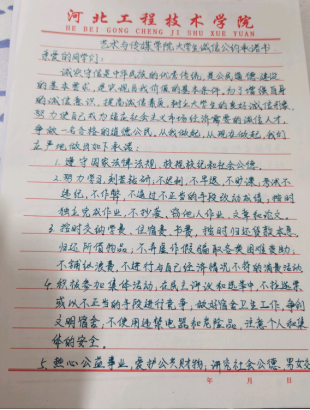 河北工程技术学院
HE BEI GONG CHENG JI SHU XUE YUAN
艺术与传媒学院大学生诚信公约承诺书
亲爱的同学们：
诚实守信是中华民族的优秀传统，是公民道德建设
的基本要求，是实现自我价值的基本条件。为了增强自身
的诚信意识，提高诚信素质，树立大学生的良好诚信形象，
努力使自己成为适应社会主义市场经济需要的诚信人才，
争做一名合格的道德公民，从我做起，从现在做起，我们
庄严地做出如下承诺：
1. 遵守国家法律法规、校规校纪和社会公德。
2. 努力学习，刻苦钻研，不迟到，不早退，不旷课，考试不
违纪，不作弊，不通过不正当的手段改动成绩；按时
独立完成作业，不抄袭、窃他人作业、文章和论文。
3. 按时交纳学费、住宿费、书费，按时归还贷款本息，
归还所借物品，不弄虚作假骗取各类困难资助，
不铺张浪费，不进行与自己经济情况不符的消费活动
4. 积极参加集体活动，在民主评议和选举中不拉选票
或以不正当的手段进行竞争，做好宿舍卫生工作，争创
文明宿舍，不使用违禁电器和危险品，注意个人和集
体的安全。
5. 热心公益事业，爱护公共财物，讲究社会公德，男女交
年 月 日